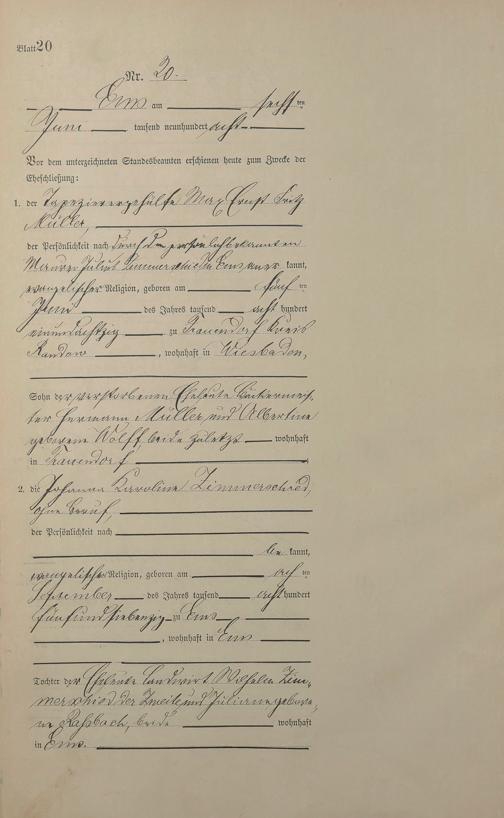 Blatt 20
Nr. 20.
Ems am sechsten
Juni tausend neunhundert acht
Vor dem unterzeichneten Standesbeamten erschienen heute zum Zwecke der
Eheschließung:
1. der Tapezierergehülfe Max Ernst Fritz
Müller,
der Persönlichkeit nach durch den persönlich bekannten
Maurer Julius Zimmerschied Ems kannt,
evangelischer Religion, geboren am fünften
Juni des Jahres tausend acht hundert
einundachtzig zu Frauendorf Kreis
Randow, wohnhaft in Wiesbaden,
Sohn der verstorbenen Eheleute Bäckermeis-
ter Hermann Müller und Albertine
geborene Wolff, beide zuletzt wohnhaft
in Frauendorf
2. die Johanna Karoline Zimmerschied,
ohne Beruf,
der Persönlichkeit nach
be kannt,
evangelischer Religion, geboren am achten
September des Jahres tausend acht hundert
fünfundsiebenzig zu Ems
, wohnhaft in Ems
Tochter der Eheleute Landwirt Wilhelm Zim-
merschied der Zweite und Juliane gebore-
ne beide wohnhaft
in Ems.